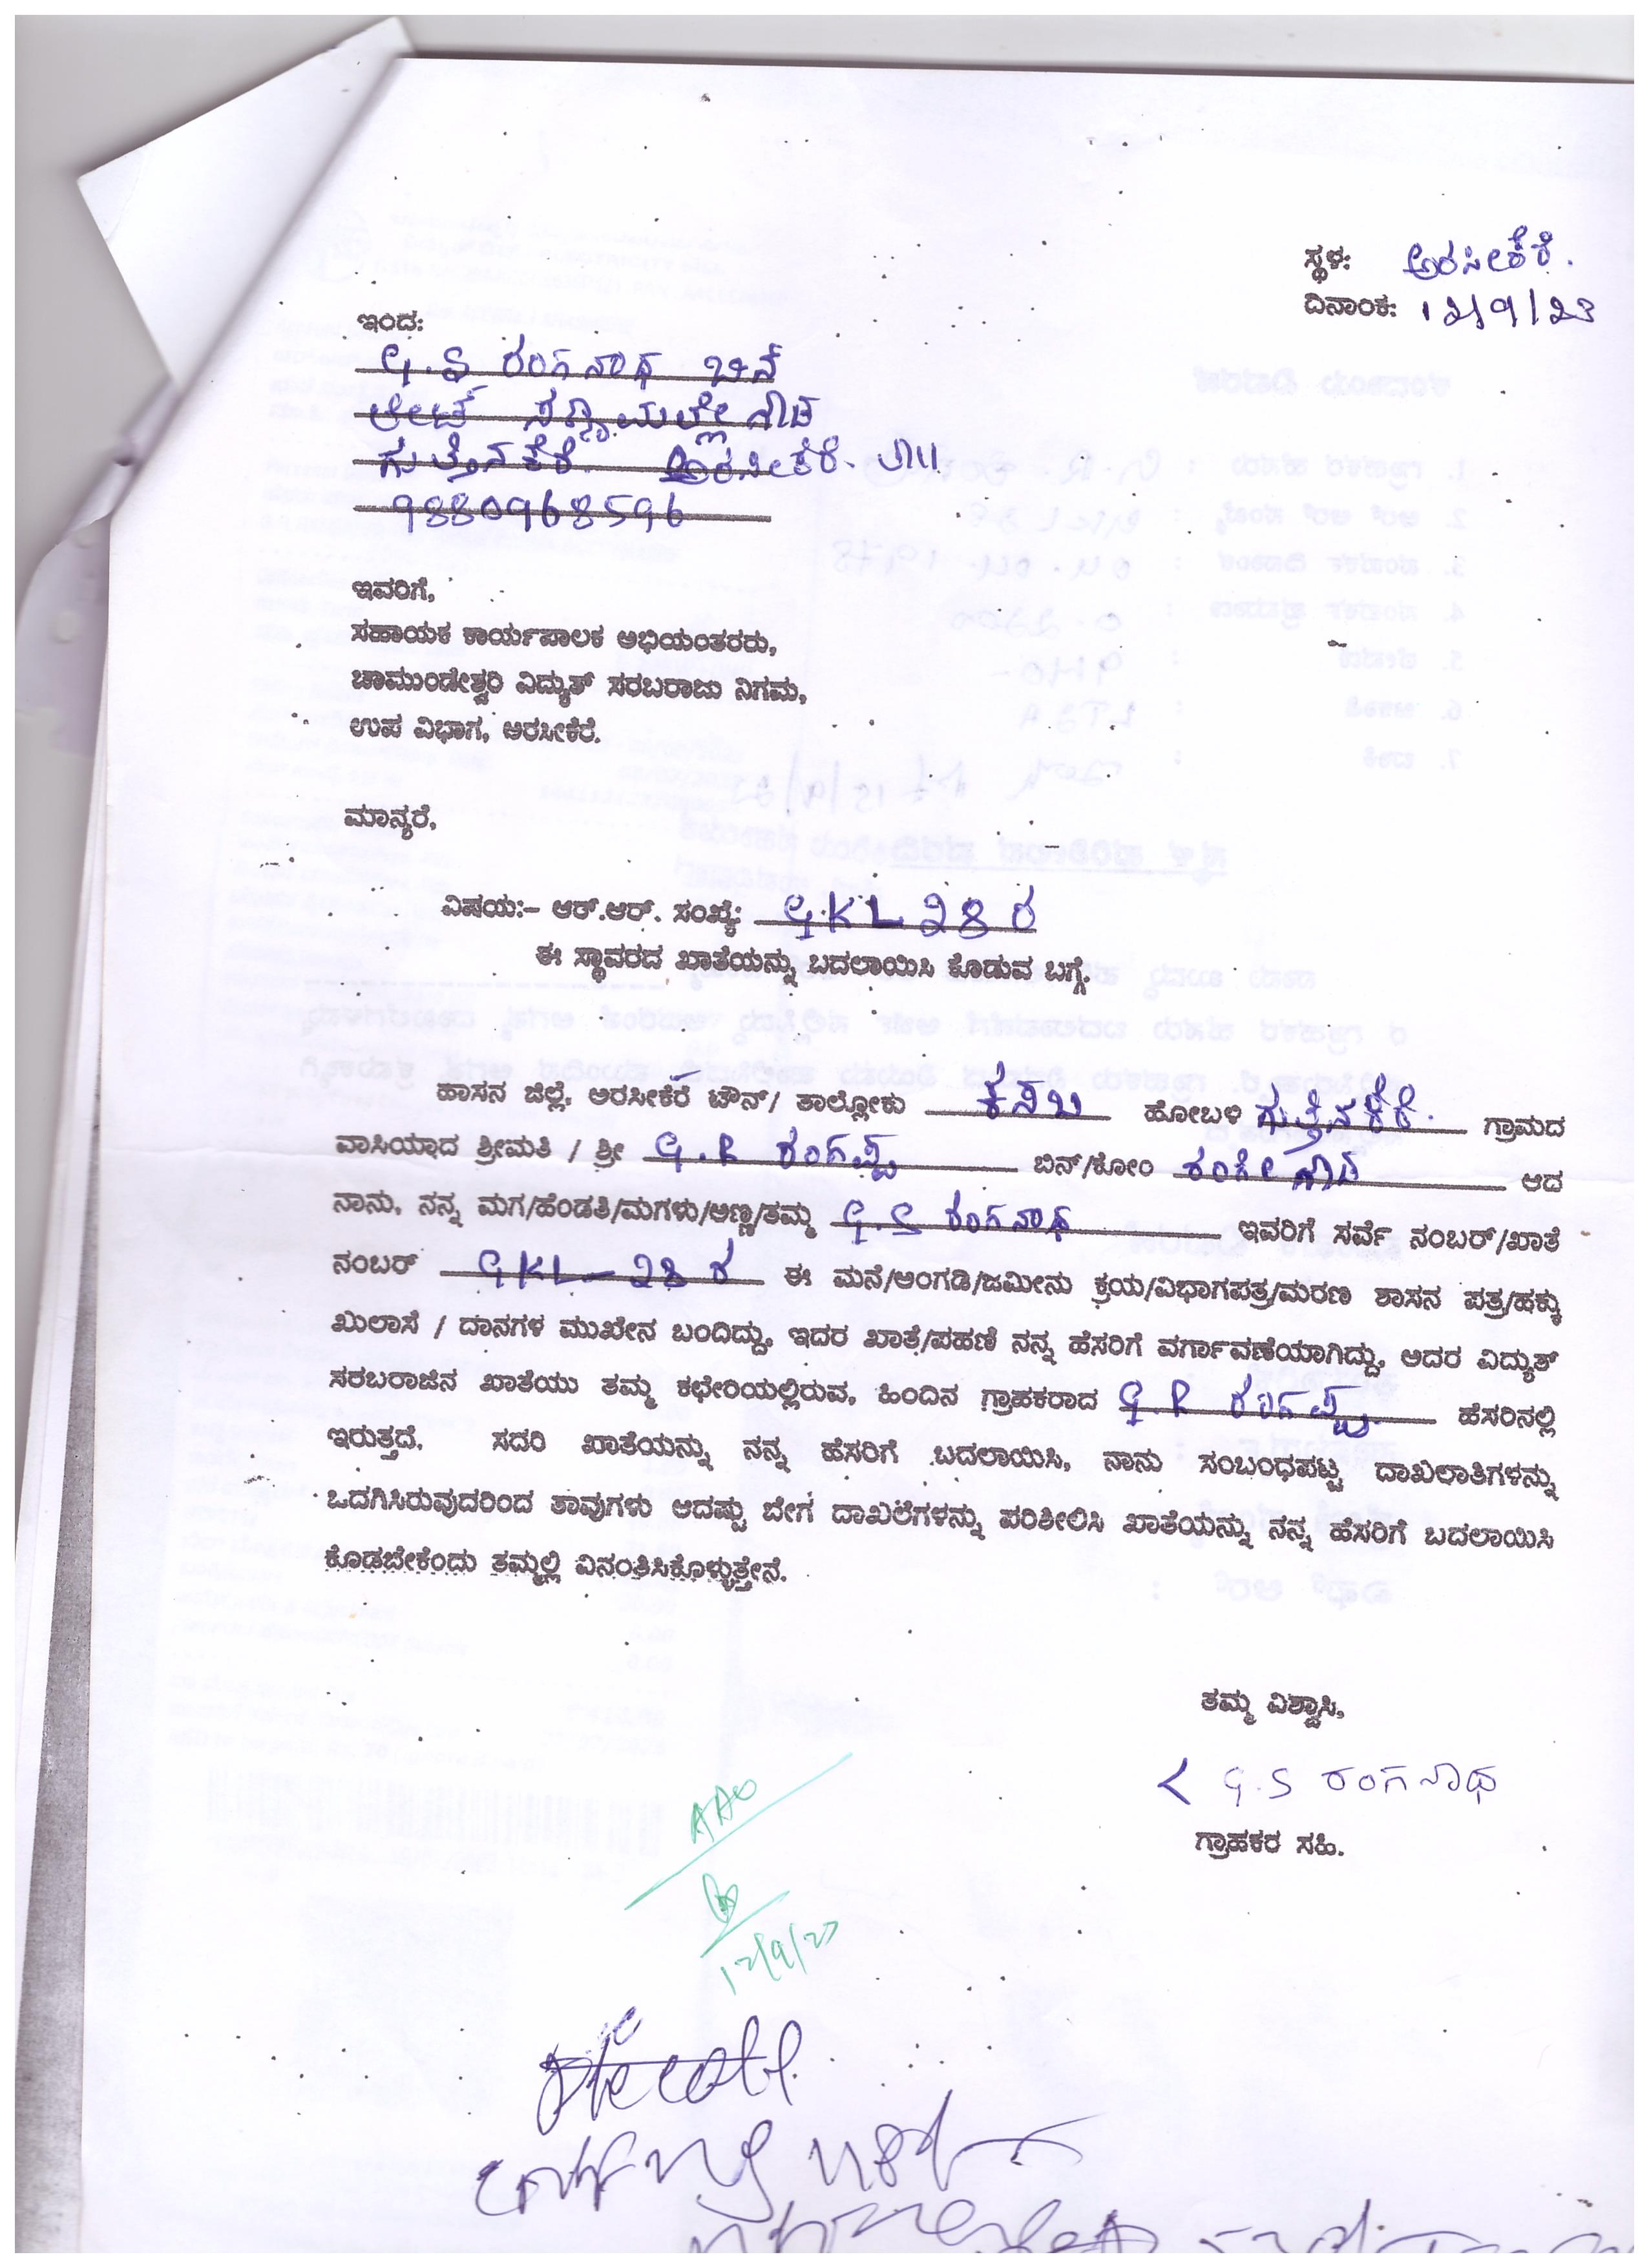 ಸ್ಥಳ: ಅರಸೀಕೆರೆ.
ದಿನಾಂಕ: 12/9/23
ಇಂದ:
G.S ರಂಗನಾಥ ಬಿನ್
ಲೇಟ್ ಸಣ್ಣಮಲ್ಲೇಗೌಡ
ಗುತ್ತಿನಕೆರೆ. ಅರಸೀಕೆರೆ.
9880968596
ಇವರಿಗೆ,
ಸಹಾಯಕ ಕಾರ್ಯಪಾಲಕ ಅಭಿಯಂತರರು,
ಚಾಮುಂಡೇಶ್ವರಿ ವಿದ್ಯುತ್ ಸರಬರಾಜು ನಿಗಮ,
ಉಪ ವಿಭಾಗ, ಅರಸೀಕೆರೆ.
ಮಾನ್ಯರೆ,
ವಿಷಯ:- ಆರ್.ಆರ್. ಸಂಖ್ಯೆ: GKL 28 ರ
ಈ ಸ್ಥಾವರದ ಖಾತೆಯನ್ನು ಬದಲಾಯಿಸಿ ಕೊಡುವ ಬಗ್ಗೆ.
ಹಾಸನ ಜಿಲ್ಲೆ, ಅರಸೀಕೆರೆ ಟೌನ್/ ತಾಲ್ಲೋಕು ಕಸಬ ಹೋಬಳಿ ಗುತ್ತಿನಕೆರೆ. ಗ್ರಾಮದ
ವಾಸಿಯಾದ ಶ್ರೀಮತಿ / ಶ್ರೀ G.R ರಂಗಪ್ಪ ಬಿನ್/ಕೋಂ ರಂಗೇಗೌಡ ಆದ
ನಾನು, ನನ್ನ ಮಗ/ಹೆಂಡತಿ/ಮಗಳು/ಅಣ್ಣ/ತಮ್ಮ G.S ರಂಗನಾಥ ಇವರಿಗೆ ಸರ್ವೆ ನಂಬರ್/ಖಾತೆ
ನಂಬರ್ GKL-28 ರ ಈ ಮನೆ/ಅಂಗಡಿ/ಜಮೀನು ಕ್ರಯ/ವಿಭಾಗಪತ್ರ/ಮರಣ ಶಾಸನ ಪತ್ರ/ಹಕ್ಕು
ಖುಲಾಸೆ / ದಾನಗಳ ಮುಖೇನ ಬಂದಿದ್ದು, ಇದರ ಖಾತೆ/ಪಹಣಿ ನನ್ನ ಹೆಸರಿಗೆ ವರ್ಗಾವಣೆಯಾಗಿದ್ದು, ಅದರ ವಿದ್ಯುತ್
ಸರಬರಾಜಿನ ಖಾತೆಯು ತಮ್ಮ ಕಛೇರಿಯಲ್ಲಿರುವ, ಹಿಂದಿನ ಗ್ರಾಹಕರಾದ G.R ರಂಗಪ್ಪ. ಹೆಸರಿನಲ್ಲಿ
ಇರುತ್ತದೆ. ಸದರಿ ಖಾತೆಯನ್ನು ನನ್ನ ಹೆಸರಿಗೆ ಬದಲಾಯಿಸಿ, ನಾನು ಸಂಬಂಧಪಟ್ಟ ದಾಖಲಾತಿಗಳನ್ನು
ಒದಗಿಸಿರುವುದರಿಂದ ತಾವುಗಳು ಆದಷ್ಟು ಬೇಗ ದಾಖಲೆಗಳನ್ನು ಪರಿಶೀಲಿಸಿ ಖಾತೆಯನ್ನು ನನ್ನ ಹೆಸರಿಗೆ ಬದಲಾಯಿಸಿ
ಕೊಡಬೇಕೆಂದು ತಮ್ಮಲ್ಲಿ ವಿನಂತಿಸಿಕೊಳ್ಳುತ್ತೇನೆ.
ತಮ್ಮ ವಿಶ್ವಾಸಿ,
G.S ರಂಗನಾಥ
ಗ್ರಾಹಕರ ಸಹಿ.
AAO
12/9/23